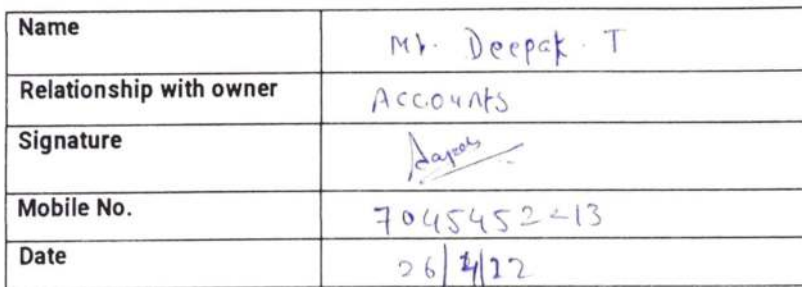 Name Mr. Deepak. T
Relationship with owner Accounts
Signature
Mobile No.
Date 26/4/22